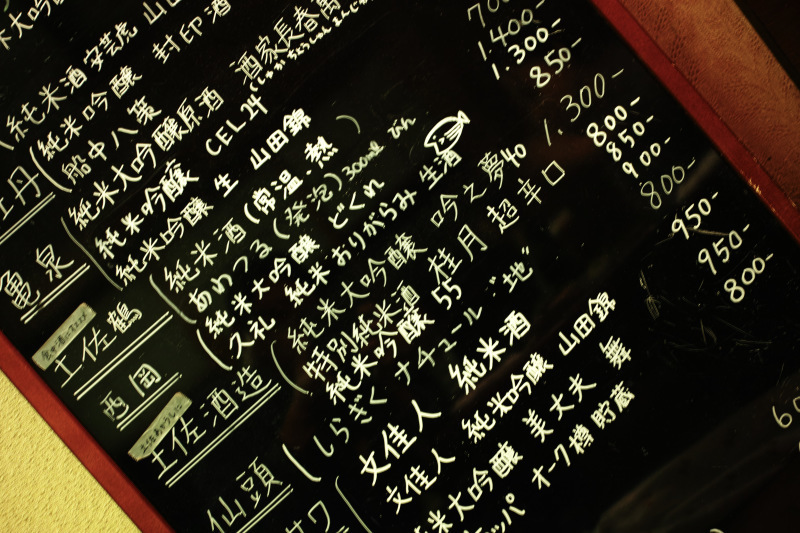 純米酒 安芸虎 山田
純米吟醸 封印酒
船中八策
純米大吟醸原酒 酒家長春萬
亀泉
純米吟醸 CEL24
純米吟醸 生 山田錦
土佐鶴
純米酒(常温・熱)
あわつる(発泡)300ml びん
純米大吟醸 どくれ
西岡
久礼 純米 おりがらみ 生酒
土佐酒造
純米大吟醸 吟之夢40
特別純米酒 桂月 超辛口
純米吟醸 55
仙頭
しらぎく ナチュール "地"
文佳人 純米酒
文佳人 純米吟醸 山田錦
純米大吟醸 美丈夫 舞
オーク樽貯蔵
1.400-
1.300-
850-
1.300-
800-
850-
900-
800-
950-
950-
800-